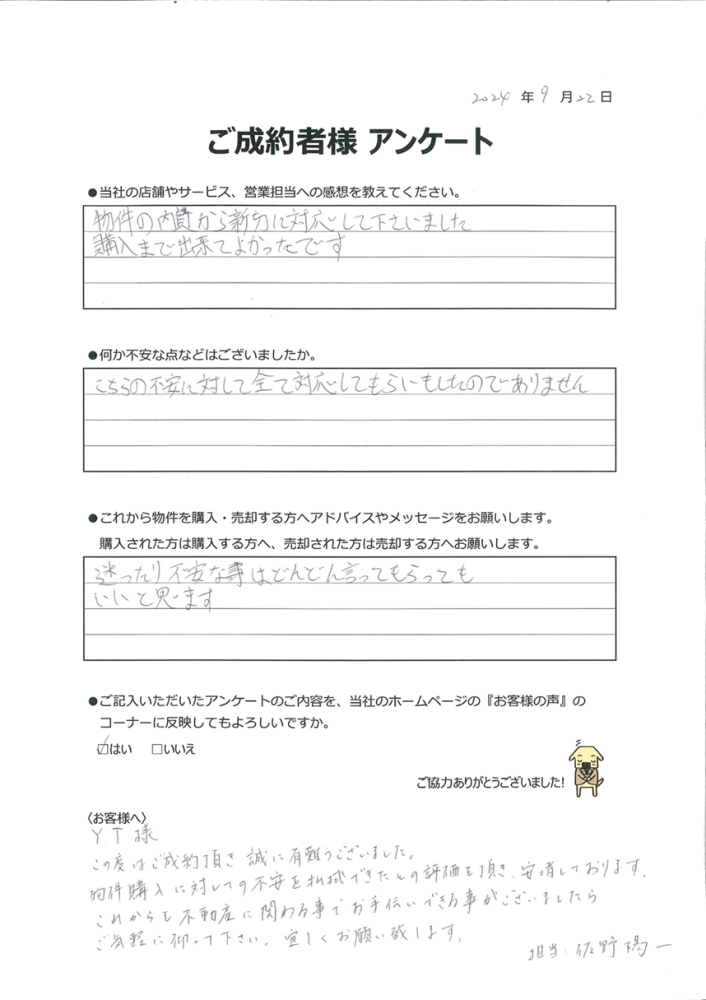 2024 年 9 月 22 日
ご成約者様 アンケート
●当社の店舗やサービス、営業担当への感想を教えてください。
物件の内覧から親切に対応して下さいました
購入まで出来てよかったです
●何か不安な点などはございましたか。
こちらの不安に対して全て対応してもらいましたのでありません
●これから物件を購入・売却する方へアドバイスやメッセージをお願いします。
購入された方は購入する方へ、売却された方は売却する方へお願いします。
迷ったり不安な事はどんどん言ってもらっても
いいと思います
●ご記入いただいたアンケートのご内容を、当社のホームページの『お客様の声』の
コーナーに反映してもよろしいですか。
☑はい □いいえ
ご協力ありがとうございました!
〈お客様へ〉
Y.T 様
この度はご成約頂き誠に有難うございました。
物件購入に対しての不安を払拭できたとの評価も頂き、安堵しております。
これからも不動産に関わる事でお手伝いできる事がございましたら
ご気軽に仰って下さい。宜しくお願い致します。
担当: 佐野陽一